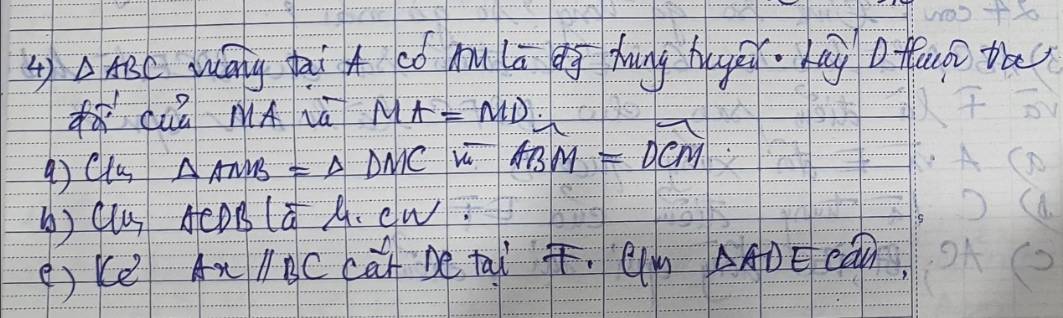 4) Δ ABC vuông tại A có AM là đg trung tuyến. Lấy D thuộc tia
đối của MA và MA = MD.
a) C/m Δ AMB = Δ DMC và ABM = DCM.
b) C/m ACDB là h.cn.
c) Kẻ Ax // BC cắt DC tại E. C/m ΔADE cân.